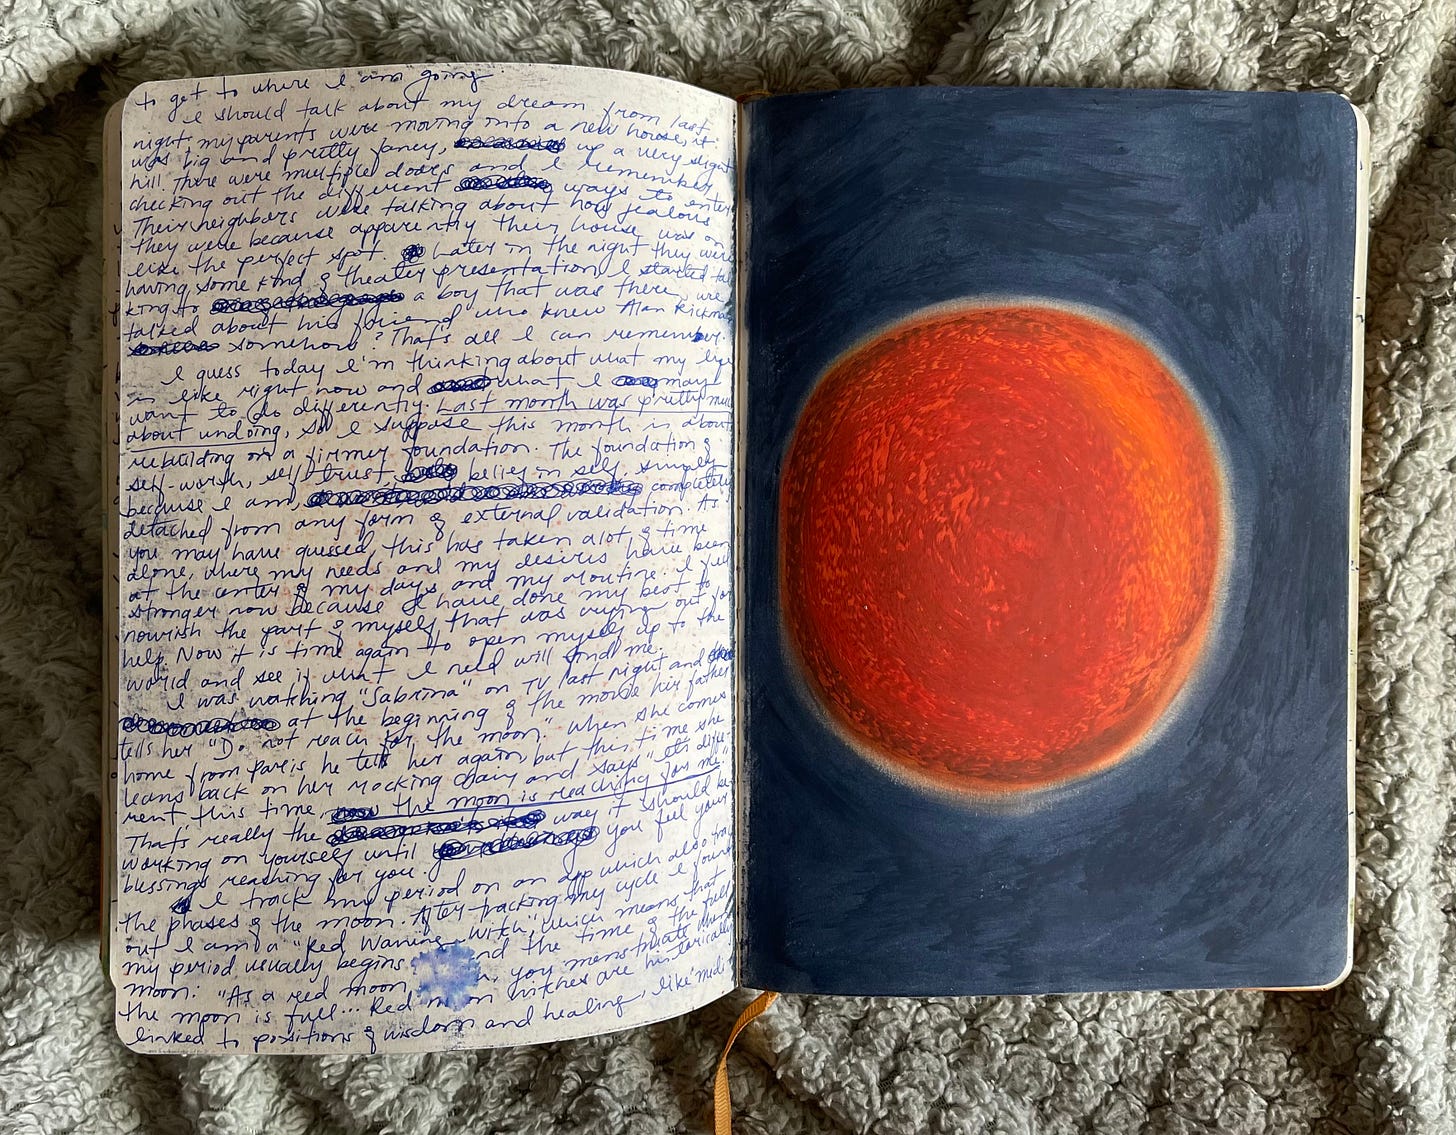 to get to where I am going.
I should talk about my dream from last
night, my parents were moving into a new house, it
was big and pretty fancy, up a very slight
hill. There were multiple doors and I remember
checking out the different ways to enter
Their neighbors were talking about how jealous
they were because apparently their house was on
like the perfect spot. Later in the night they were
having some kind of theater presentation I started tal
king to a boy that was there, we
talked about his friend who knew Alan Rickman
somehow? That's all I can remember.
I guess today I'm thinking about what my life
is like right now and what I may
want to do differently. Last month was pretty much
about undoing, so I suppose this month is about
rebuilding on a firmer foundation. The foundation of
self-worth, self trust, belief in self, simply
because I am, completely
detached from any form of external validation. As
you may have guessed, this has taken alot of time
alone, where my needs and my desires have been
at the center of my days and my routine. I feel
stronger now because I have done my best to
nourish the part of myself that was crying out for
help. Now it is time again to open myself up to the
world and see if what I need will find me.
I was watching "Sabrina" on TV last night and
at the beginning of the movie her father
tells her "Do not reach for the moon." When she comes
home from Paris he tells her again, but this time she
leans back on her rocking chair and says "its diffe-
rent this time, the moon is reaching for me."
That's really the way it should be
working on yourself until you feel your
blessings reaching for you.
I track my period on an app which also
the phases of the moon. After tracking my cycle I found
out I am a "Red Waning witch", which means that
my period usually begins nd the time of the full
moon: "As a red moon, you menstruate when
the moon is full... Red moon witches are historically
linked to positions of wisdom and healing, like medi